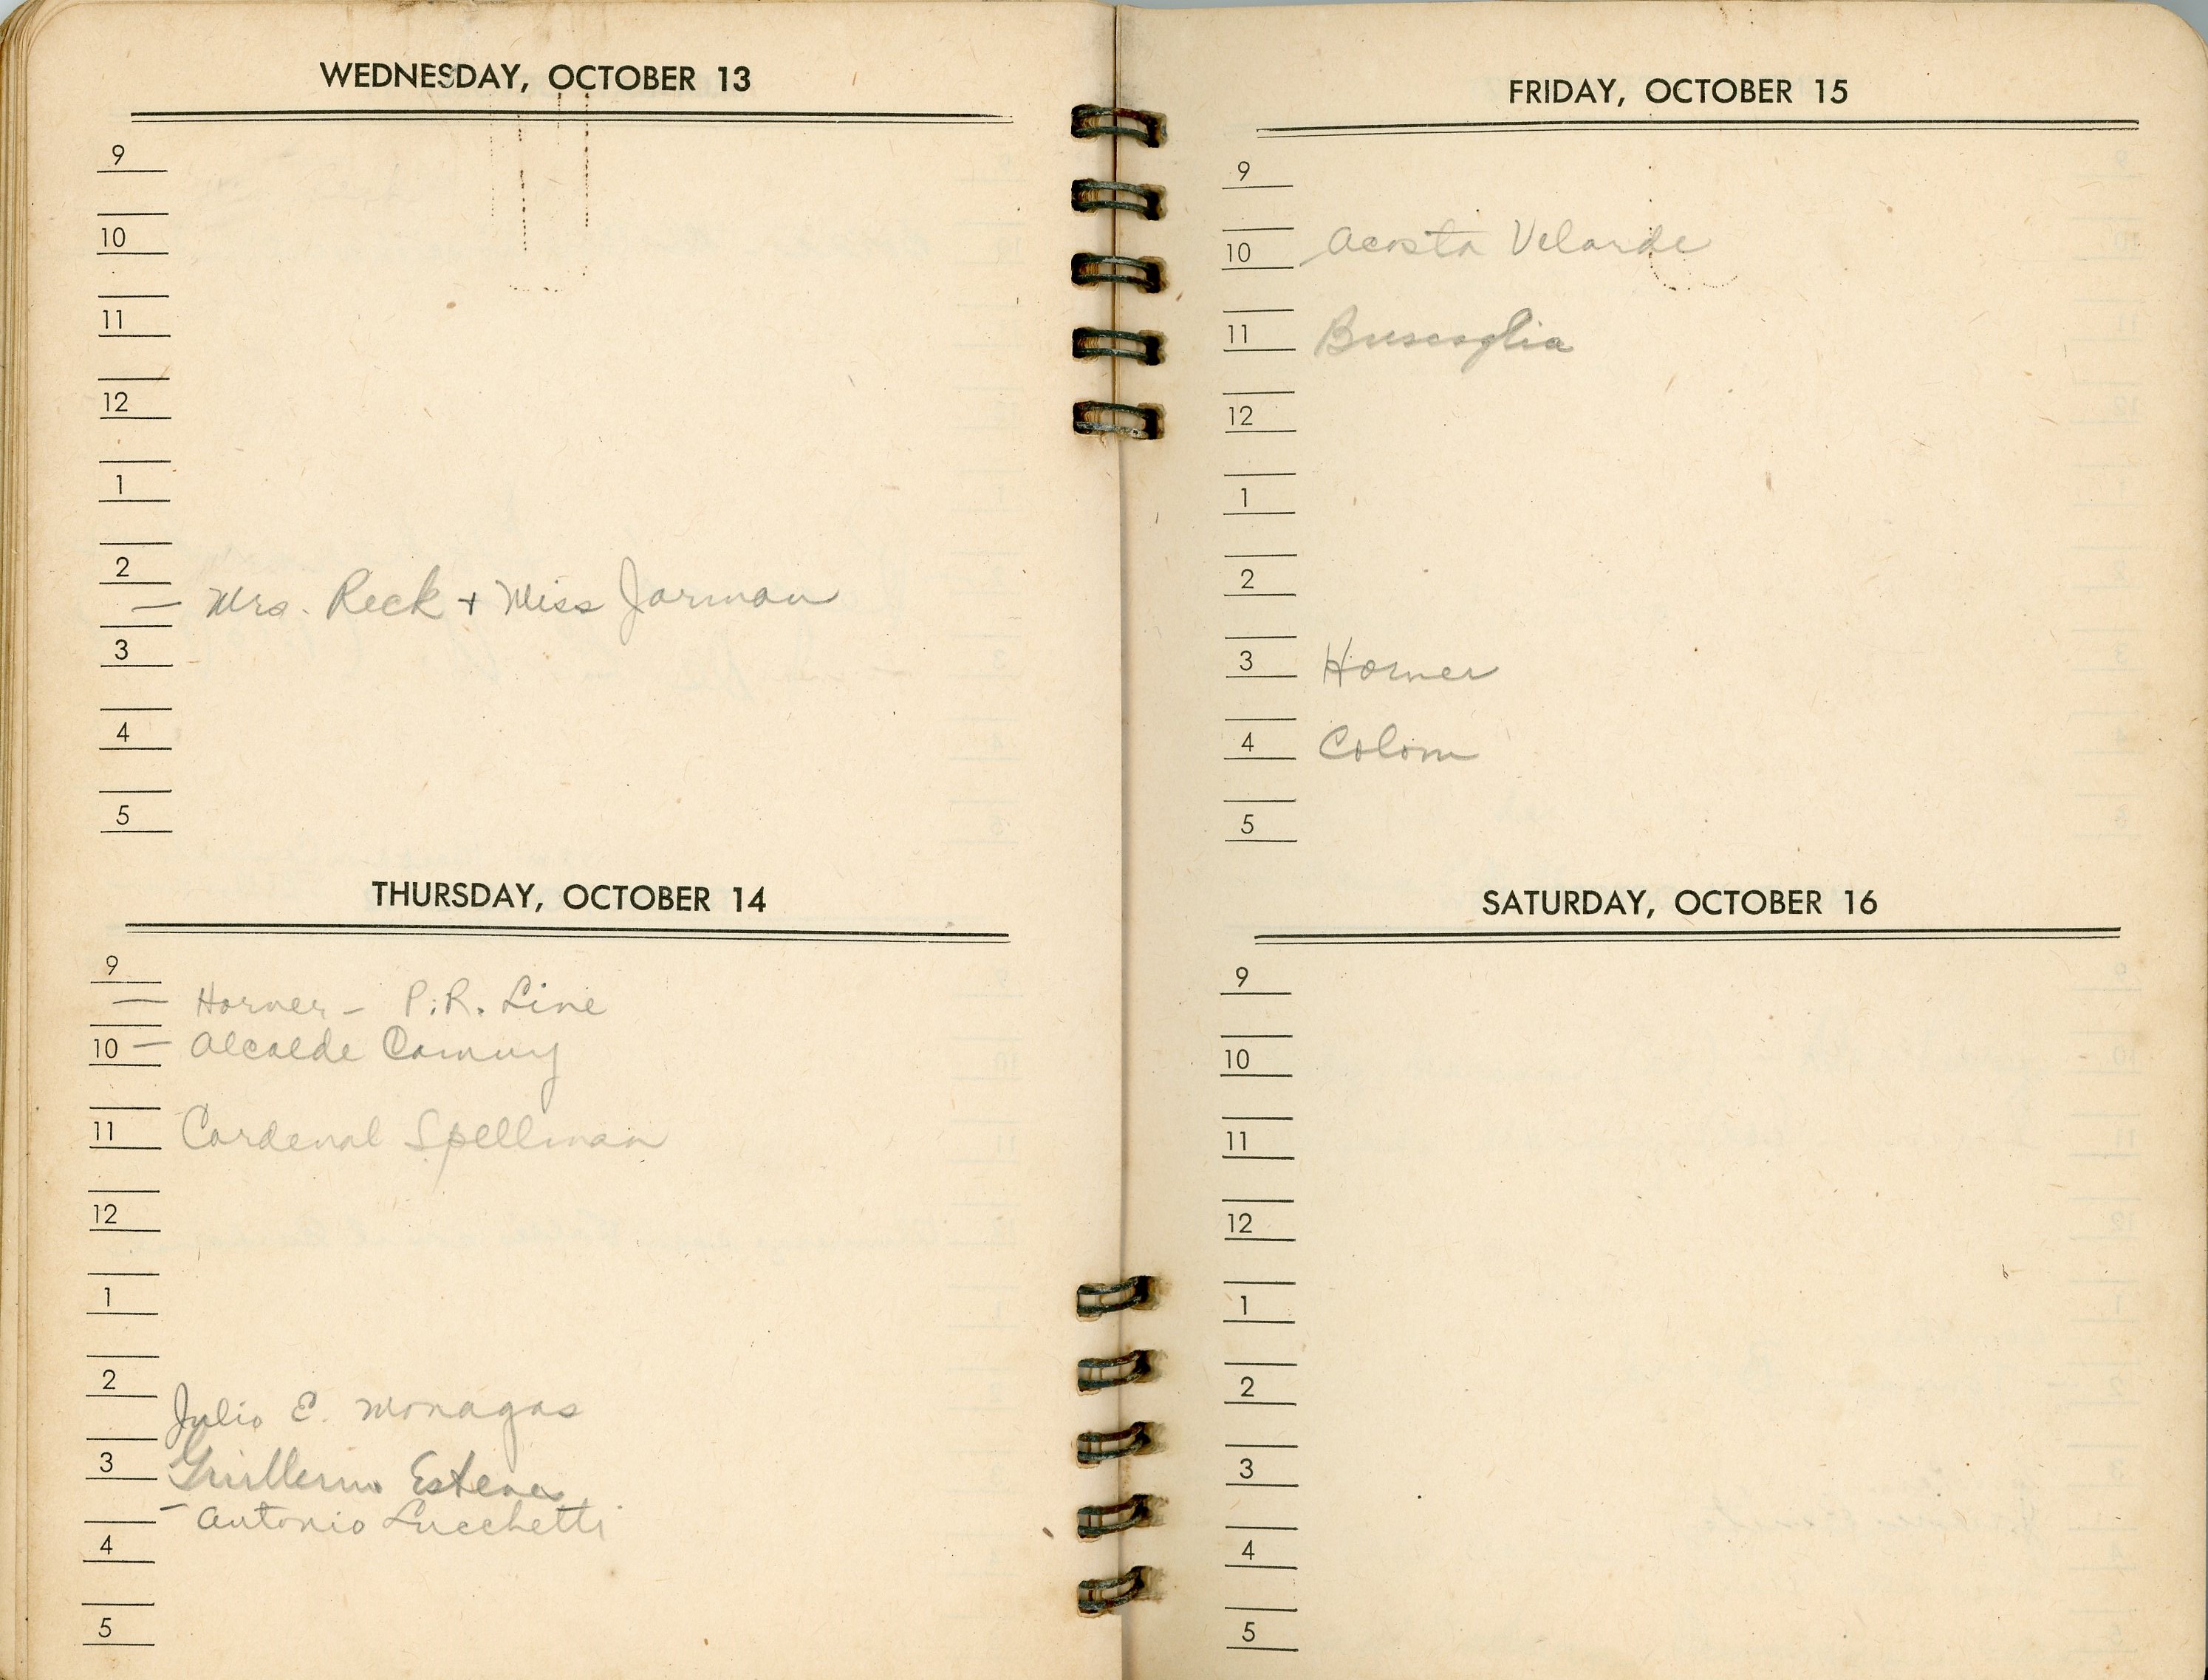 WEDNESDAY, OCTOBER 13
9
10
11
12
1
2
— Mrs. Reck + Miss Jarman
3
4
5
THURSDAY, OCTOBER 14
9
— Horner – P.R. Line
10 — Alcalde Camuy
11 Cardenal Spellman
12
1
2
Julio E. Monagas
3 Guillermo Esteves
— Antonio Lucchetti
4
5
FRIDAY, OCTOBER 15
9
10 Acosta Velarde
11 Buscaglia
12
1
2
3 Horner
4 Colom
5
SATURDAY, OCTOBER 16
9
10
11
12
1
2
3
4
5